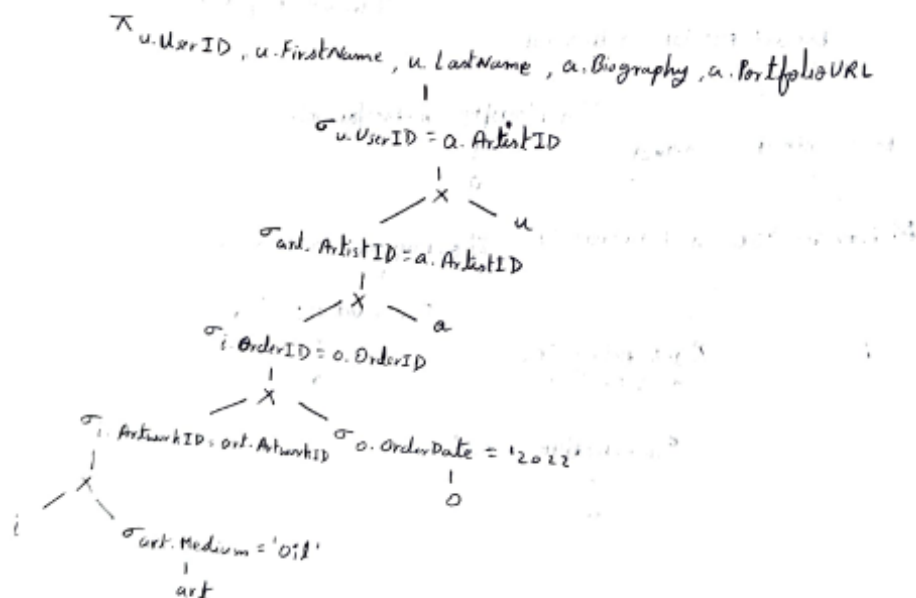 π u.UserID, u.FirstName, u.LastName, a.Biography, a.PortfolioURL
σ u.UserID = a.ArtistID
×
u
σ art.ArtistID = a.ArtistID
×
a
σ i.OrderID = o.OrderID
×
σ i.ArtworkID = art.ArtworkID
σ o.OrderDate = '2022'
×
o
i
σ art.Medium = 'Oil'
art